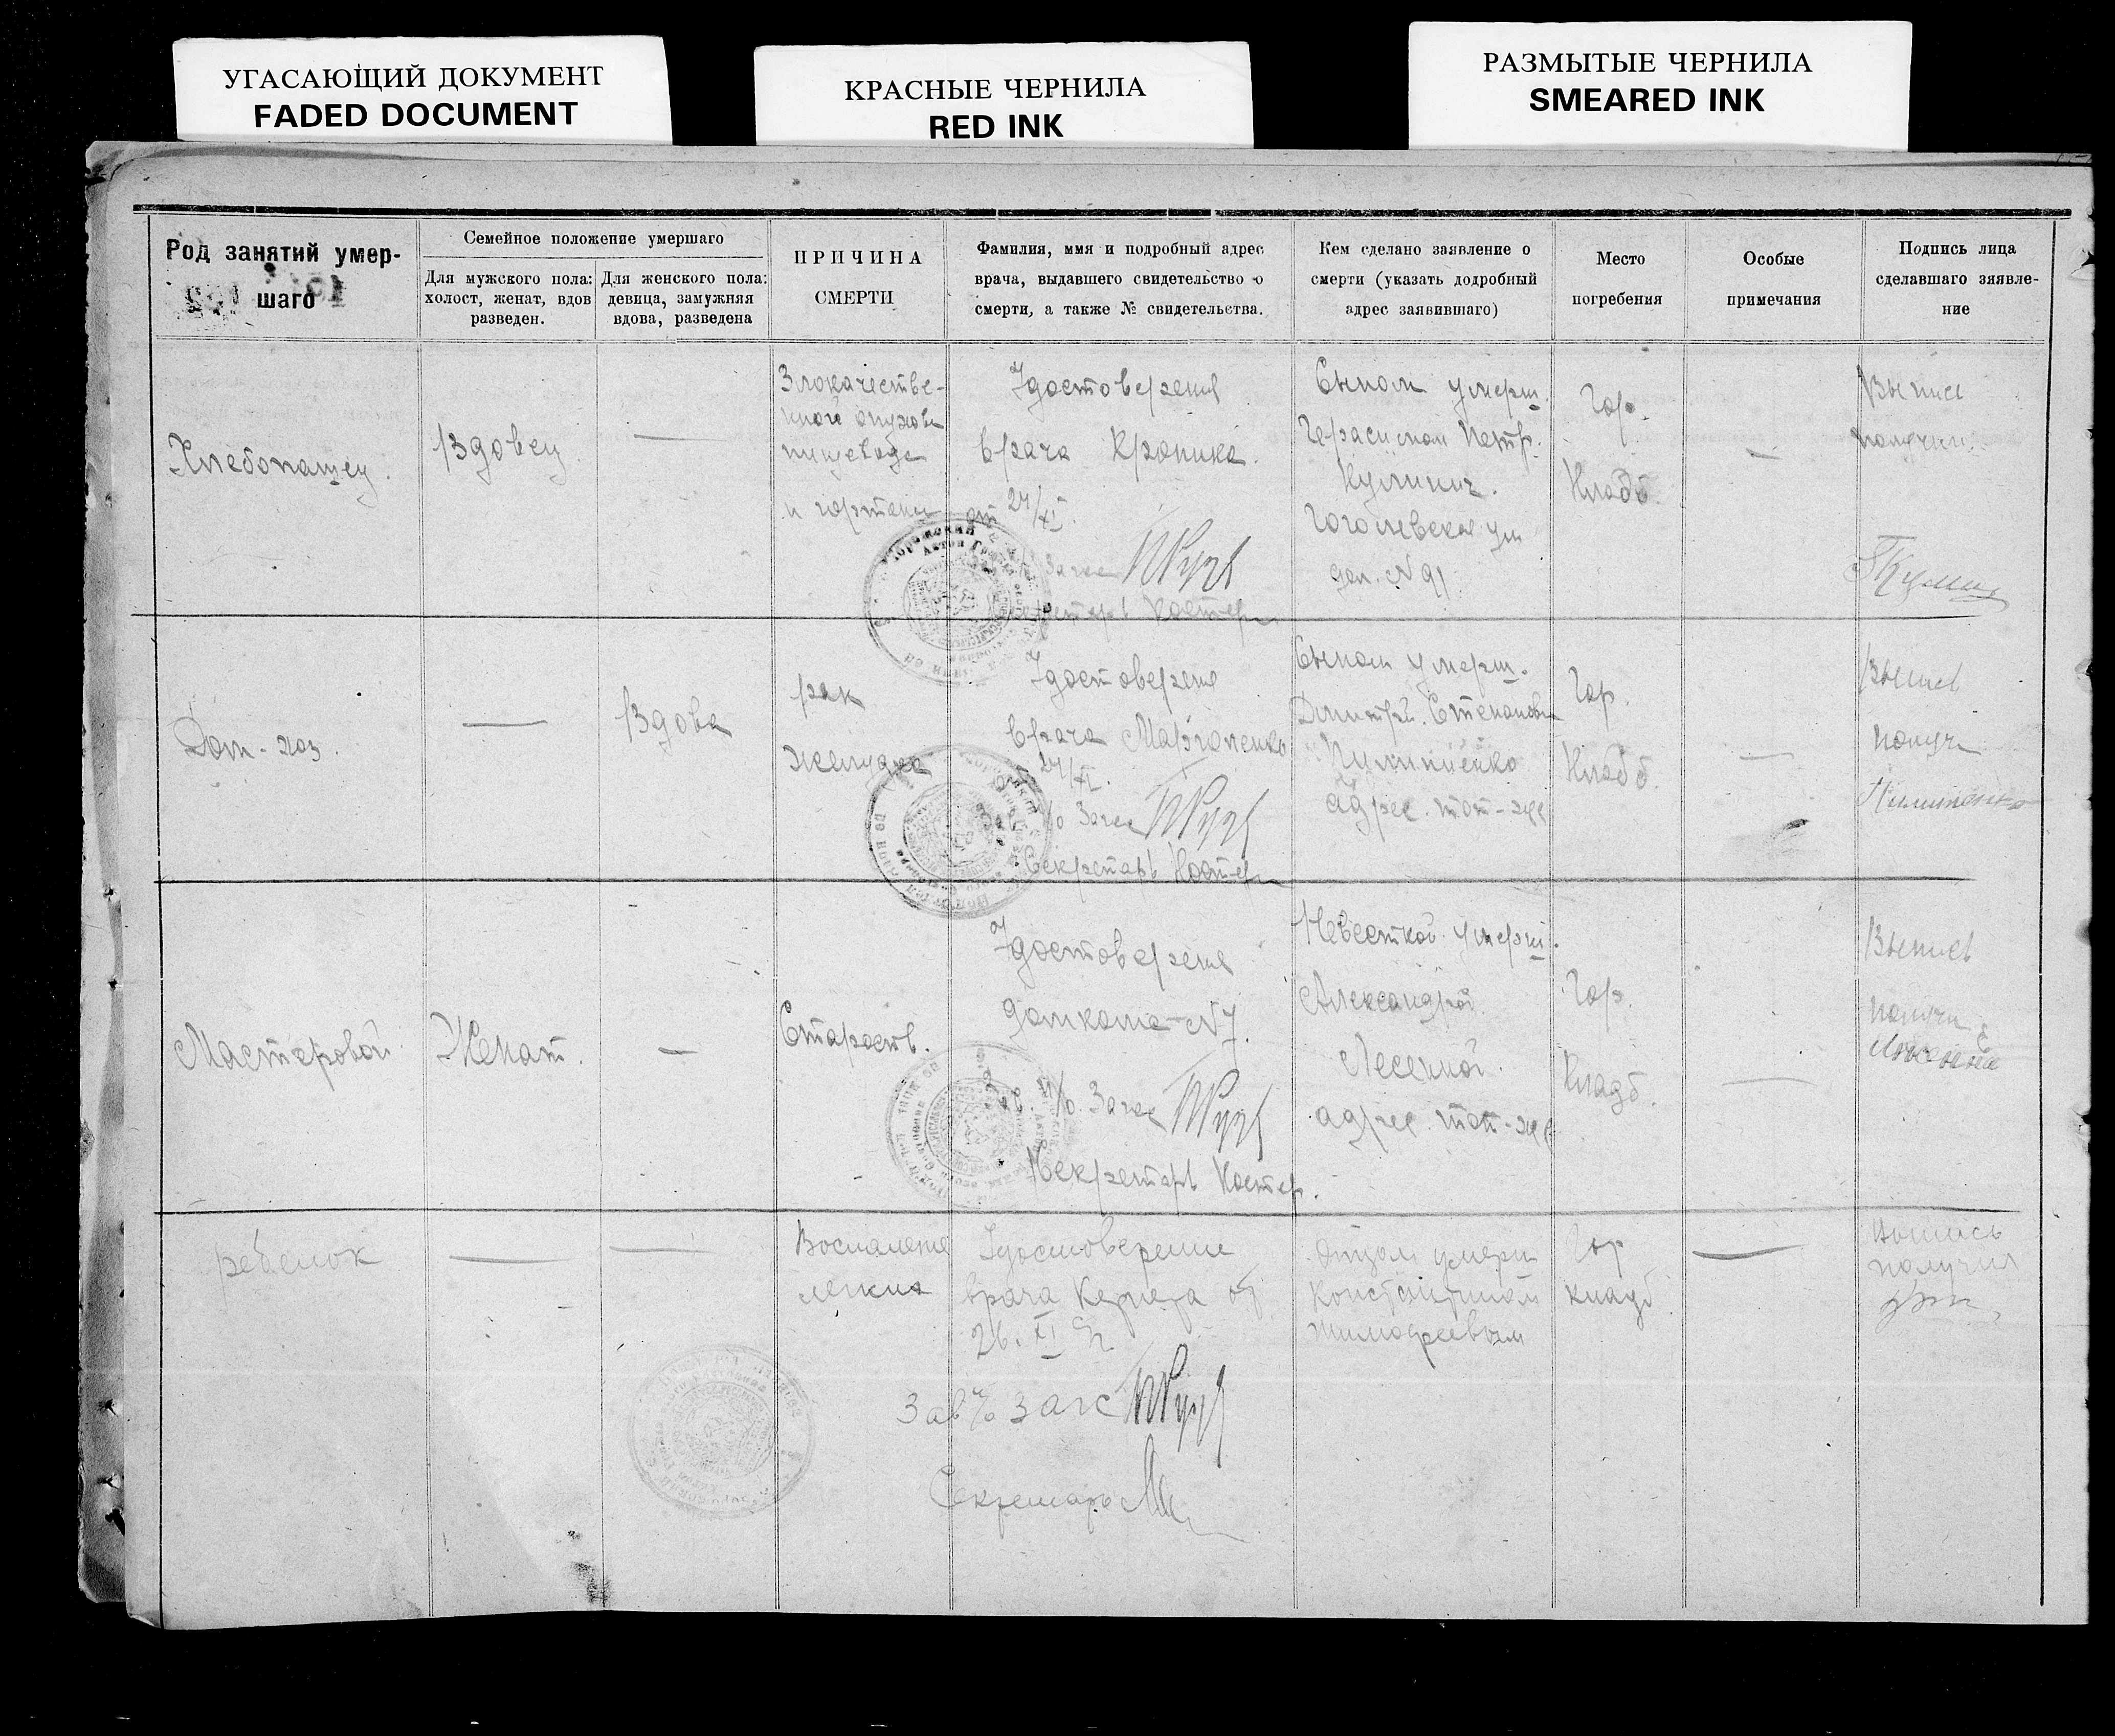 УГАСАЮЩИЙ ДОКУМЕНТ
FADED DOCUMENT
КРАСНЫЕ ЧЕРНИЛА
RED INK
РАЗМЫТЫЕ ЧЕРНИЛА
SMEARED INK
Род занятий умер-
шаго
Семейное положение умершаго
Для мужского пола:
холост, женат, вдов
разведен.
Для женского пола:
девица, замужняя
вдова, разведена
ПРИЧИНА
СМЕРТИ
Фамилия, ммя и подробный адрес
врача, выдавшего свидетельство о
смерти, а также № свидетельства.
Кем сделано заявление о
смерти (указать додробный
адрес заявившаго)
Место
погребения
Особые
примечания
Подпись лица
сделавшаго зяявле-
ние
Хлебопашец.
Вдовец
—
Злокачестве-
пищевода
и гортани
Удостоверения
врача
от 27/XI.
Загса
Секретарь
Сыном умерш.
Герасимом Петр.
Гоголевская ул
дом. N 91
Гор.
Кладб.
—
Выпись
получил
Дом-хоз.
—
Вдова
рак
желудка
Удостоверения
врача
27/XI.
Загса
Секретарь
Сыном умерш.
Дмитрй.
Пилипенко
адрес. тот-же
Гор.
Кладб.
—
Выпись
получ
Пилипенко
Мастеровой
Женат.
—
Старость.
Удостоверения
домкома N 7.
Загса
Секретарь
Невесткой умерш.
Александрой
адрес. тот-же
Гор.
Кладб.
—
Выпись
получи
ребенок
—
—
Воспаление
легких
Удостоверение
врача
26. XI
Зав п/о Загс
Секретарь
Отцом умерш
Константином
Тимофеевым
Гор
кладб
—
Выпись
получил